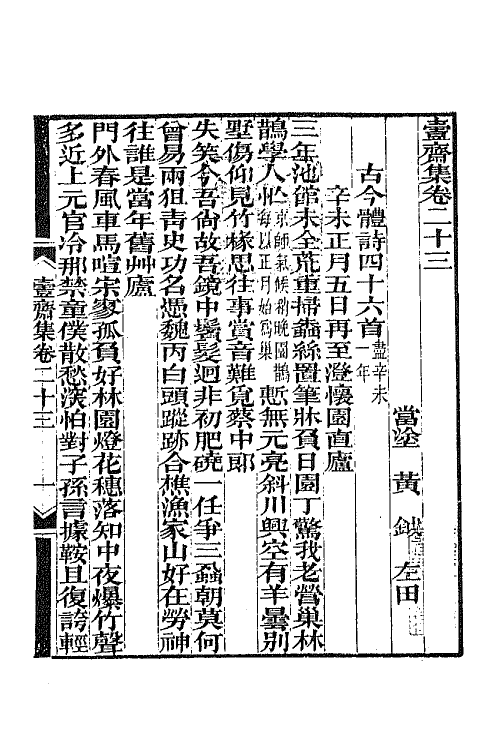 壹齋集卷二十三
當塗 黃 鉞 左田
古今體詩四十六首盡辛未一年
辛未正月五日再至澄懷園直廬
三年池館未全荒重掃蟲絲置筆牀負日園丁驚我老營巢林
鵲學人忙京師氣候稍晚園鵲每以正月始為巢慙無元亮斜川興空有羊曇別
墅傷仰見竹椽思往事賞音難覓蔡中郎
失笑今吾尙故吾鏡中鬢髮迥非初肥磽一任爭三蝨朝莫何
曾易兩狙靑史功名慿魏丙白頭蹤跡合樵漁家山好在勞神
往誰是當年舊艸廬
門外春風車馬喧宋寥孤負好林園燈花穗落知中夜爆竹聲
多近上元官冷那禁童僕散愁深怕對子孫言據鞍且復誇輕
壹齋集卷二十三 一